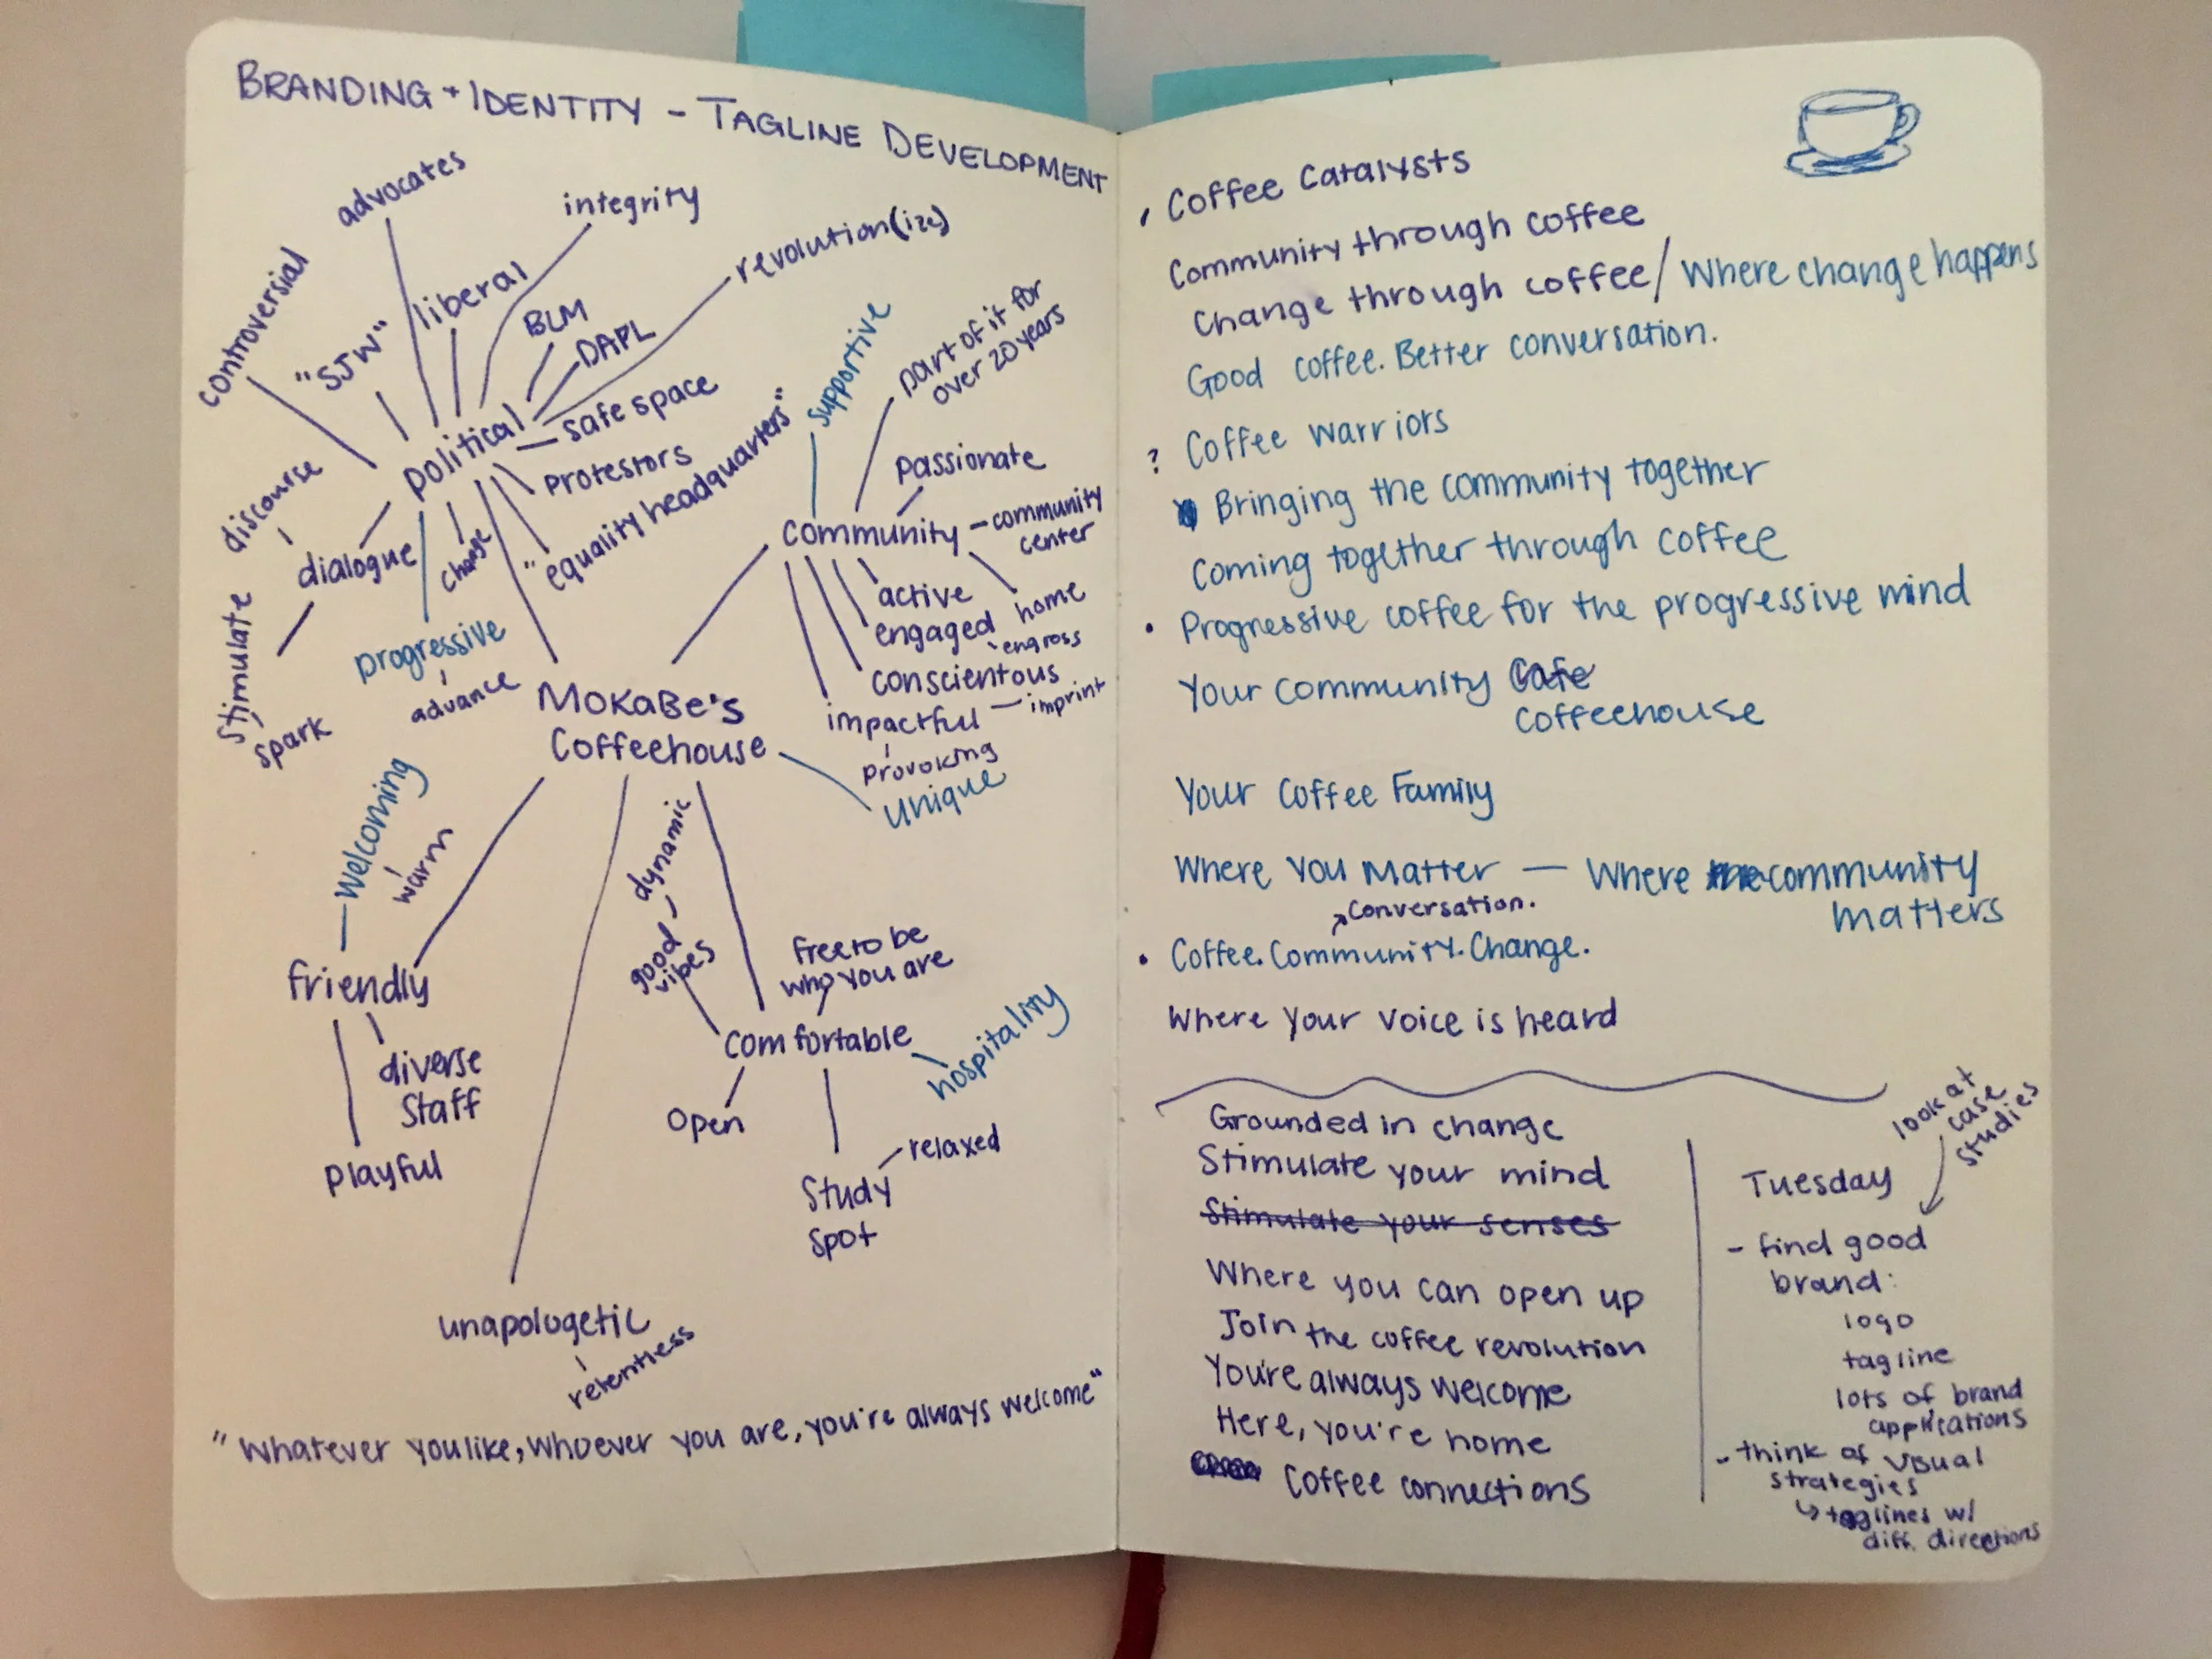 BRANDING + IDENTITY - TAGLINE DEVELOPMENT
advocates
integrity
revolution(ize)
controversial
"SJW"
liberal
BLM
DAPL
political
safe space
protestors
"equality headquarters"
change
discourse
dialogue
Stimulate
spark
progressive
advance
supportive
part of it for
over 20 years
passionate
community
community
center
active
engaged
home
engross
conscientous
impactful
imprint
provoking
unique
MoKaBe's
Coffeehouse
welcoming
warm
friendly
diverse
staff
playful
dynamic
good
vibes
free to be
who you are
comfortable
hospitality
open
study
spot
relaxed
unapologetic
relentless
"Whatever you like, whoever you are, you're always welcome"
Coffee Catalysts
Community through coffee
Change through coffee / Where change happens
Good coffee. Better conversation.
? Coffee warriors
Bringing the community together
Coming together through coffee
• Progressive coffee for the progressive mind
Your community Cafe
Coffeehouse
Your Coffee Family
Where You Matter — Where the community
matters
conversation.
• Coffee. Community. Change.
Where your voice is heard
Grounded in change
Stimulate your mind
Stimulate your senses
Where you can open up
Join the coffee revolution
You're always welcome
Here, you're home
Coffee connections
look at
case
studies
Tuesday
- find good
brand:
logo
tagline
lots of brand
applications
- think of visual
strategies
↳ taglines w/
diff. directions